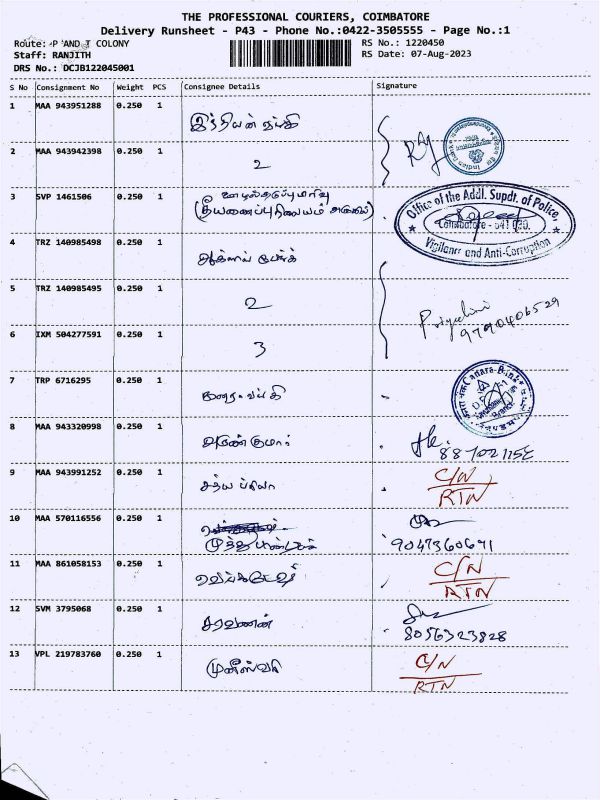 THE PROFESSIONAL COURIERS, COIMBATORE
Delivery Runsheet - P43 - Phone No.:0422-3505555 - Page No.:1
Route: P AND T COLONY
RS No.: 1220450
Staff: RANJITH
RS Date: 07-Aug-2023
DRS No.: DCJB122045001
S No Consignment No Weight PCS Consignee Details Signature
1 MAA 943951288 0.250 1 இந்தியன் வங்கி
2 MAA 943942398 0.250 1 2
3 SVP 1461506 0.250 1
Office of the Addl. Supdt. of Police,
Coimbatore - 641 030.
Vigilance and Anti-Corruption
4 TRZ 140985498 0.250 1
5 TRZ 140985495 0.250 1 2
9790406529
6 IXM 504277591 0.250 1 3
7 TRP 6716295 0.250 1 கனரா வங்கி
Canara Bank
8 MAA 943320998 0.250 1 அருண்குமார்
9 MAA 943991252 0.250 1 சத்ய பிரியா C/N
RTN
10 MAA 570116556 0.250 1
9047360671
11 MAA 861058153 0.250 1 வெங்கடேஷ் C/N
RTN
12 SVM 3795068 0.250 1 சரவணன்
8056323828
13 VPL 219783760 0.250 1 முனீஸ்வரி C/N
RTN